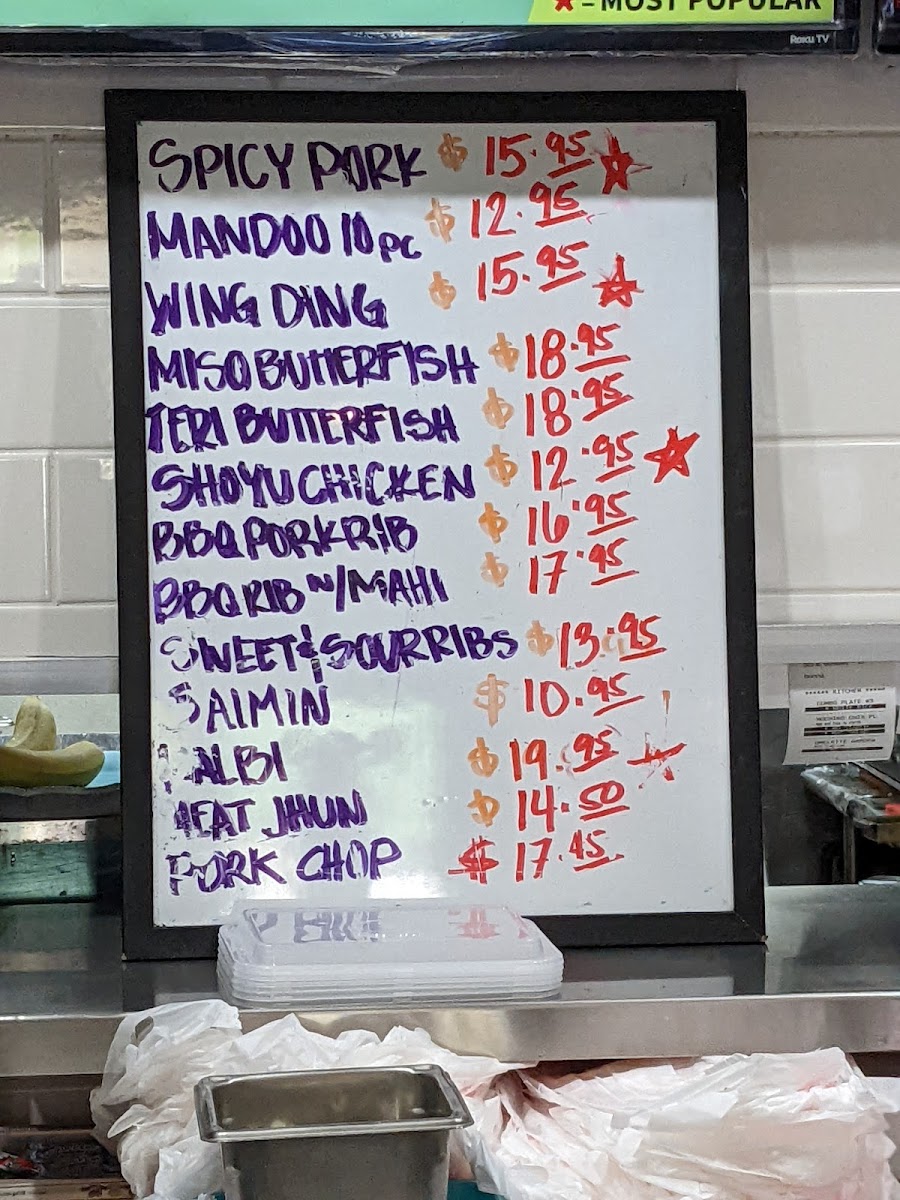 ★ = MOST POPULAR
Roku TV
SPICY PORK $ 15.95 ★
MANDOO 10 PC $ 12.95
WING DING $ 15.95 ★
MISO BUTTERFISH $ 18.95
TERI BUTTERFISH $ 18.95
SHOYU CHICKEN $ 12.95 ★
BBQ PORK RIB $ 16.95
BBQ RIB W/MAHI $ 17.95
SWEET & SOUR RIBS $ 13.95
SAIMIN $ 10.95
KALBI $ 19.95 ★
MEAT JHUN $ 14.50
PORK CHOP $ 17.45
KITCHEN
COMBO PLATE #3